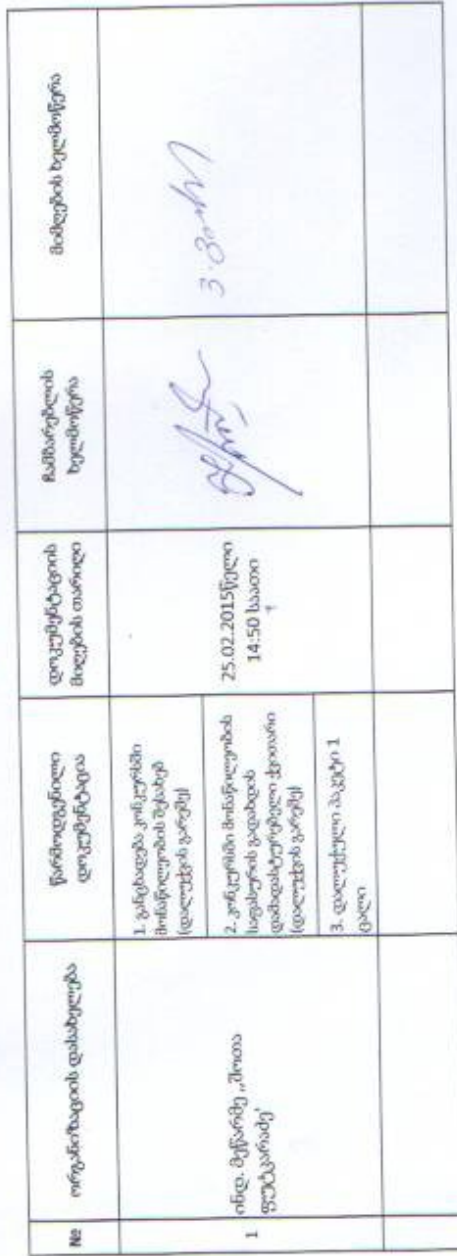 №
ორგანიზაციის დასახელება
წარმოდგენილი
დოკუმენტაცია
დოკუმენტაციის
მიღების თარიღი
ჩამბარებლის
ხელმოწერა
მიმღების ხელმოწერა
1
ინდ. მეწარმე ,,შოთა
ფუტკარაძე'
1. განცხადება კონკურსში
მონაწილეობის შესახებ
(დალუქვის გარეშე)
2. კონკურსში მონაწილეობის
საფასურის გადახდის
დამადასტურებელი ქვითარი
(დალუქვის გარეშე)
3. დალუქული პაკეტი 1
ცალი
25.02.2015წელი
14:50 საათი